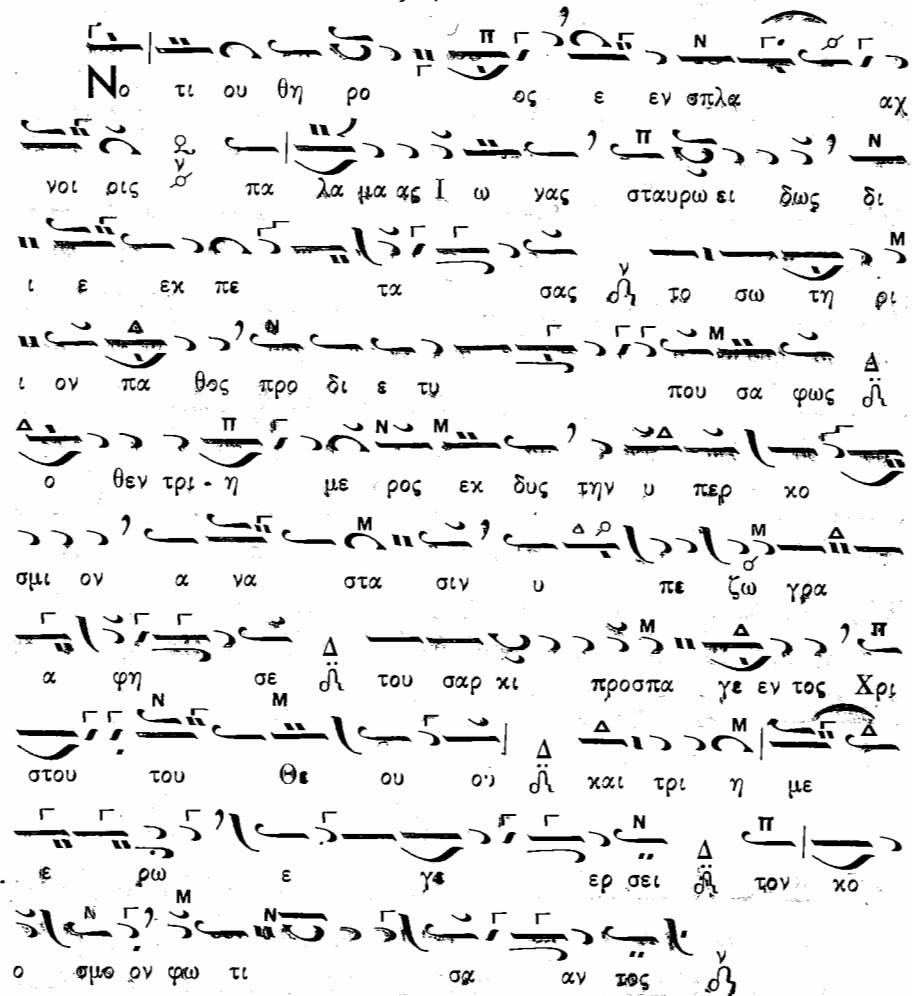 Νο τι ου θη ρο ος ε εν σπλα αχ
νοι οις πα λα μα ας Ι ω νας σταυρω ει δως δι
ι ε εκ πε τα σας το σω τη ρι
ι ον πα θος προ δι ε τυ που σα φως
ο θεν τρι - η με ρος εκ δυς την υ περ κο
σμι ον α να στα σιν υ πε ζω γρα
α φη σε του σαρ κι προσπα γε εν τος Χρι
στου του Θε ου ου και τρι η με
ε ρω ε γε ερ σει τον κο
ο σμο ον φω τι σα αν τος